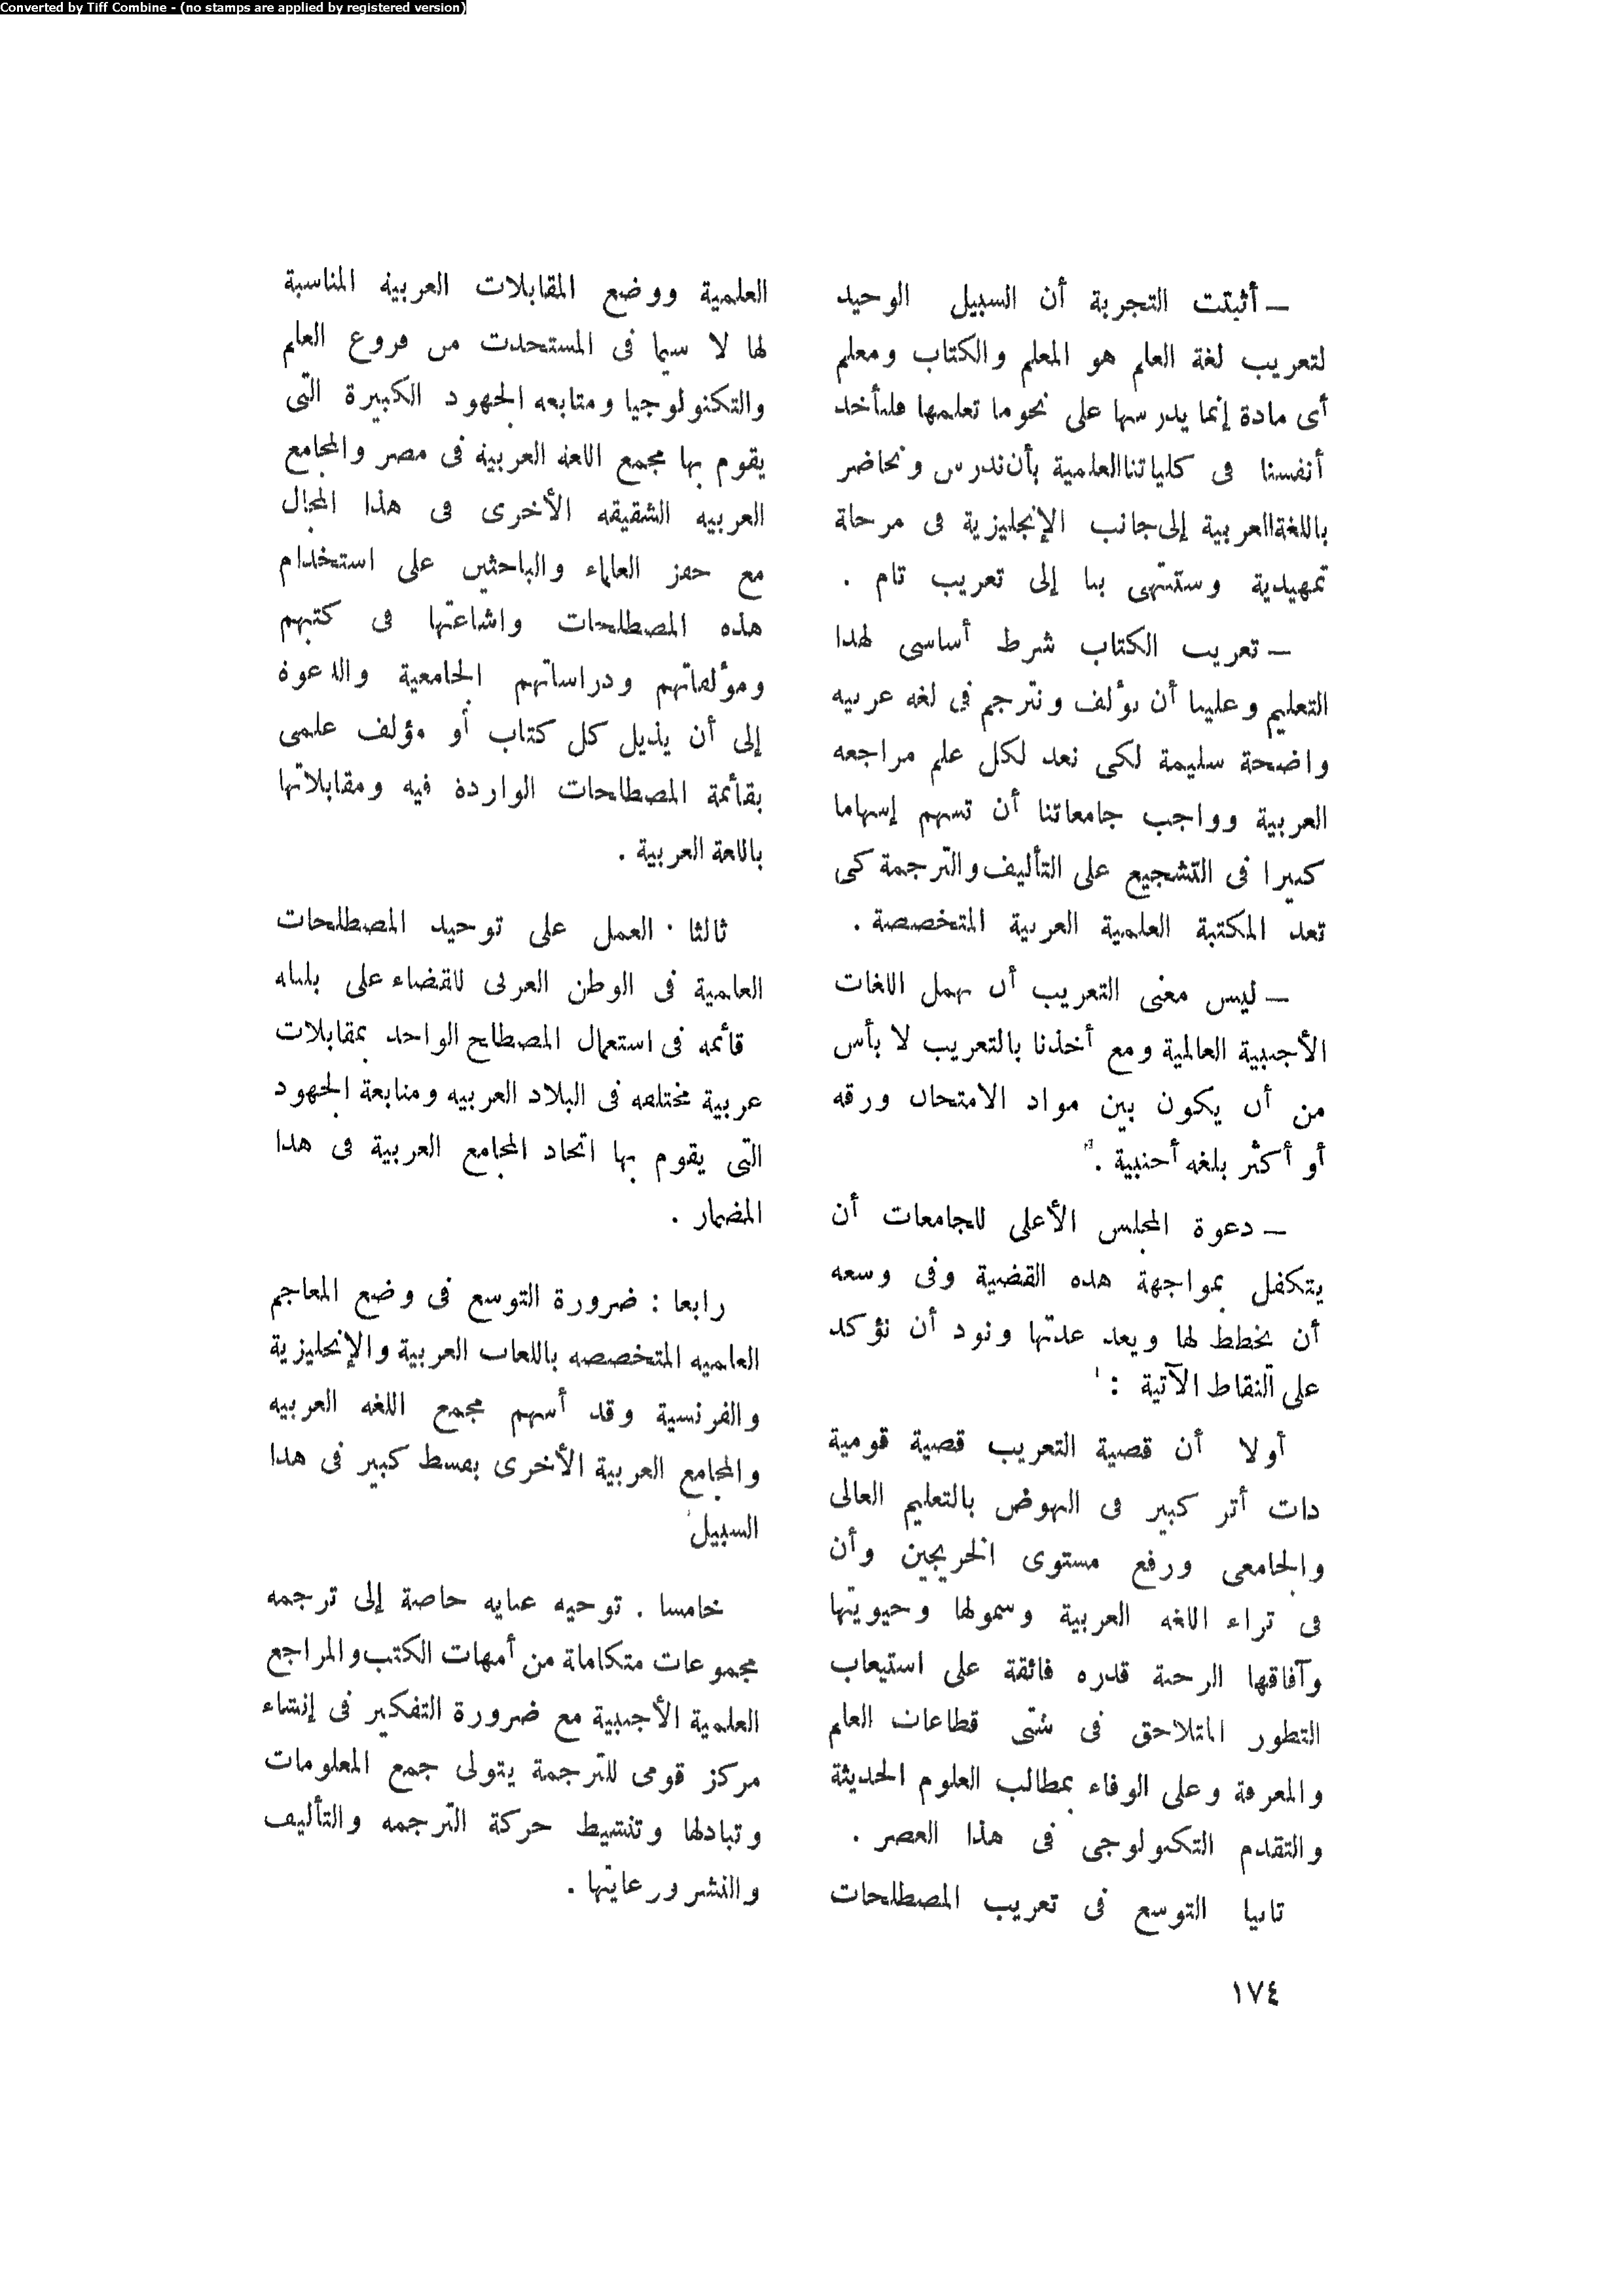 Converted by Tiff Combine - (no stamps are applied by registered version)
— أثبتت التجربة أن السبيل الوحيد
لتعريب لغة العلم هو المعلم والكتاب ومعلم
أى مادة إنما يدرسها على نحو ما تعلمها فلنأخذ
أنفسنا فى كلياتنا العلمية بأن ندرس ونحاضر
باللغة العربية إلى جانب الإنجليزية فى مرحلة
تمهيدية وستنتهى بنا إلى تعريب تام .
— تعريب الكتاب شرط أساسى لهذا
التعليم وعلينا أن نؤلف ونترجم فى لغه عربيه
واضحة سليمة لكى نعد لكل علم مراجعه
العربية وواجب جامعاتنا أن تسهم إسهاما
كبيرا فى التشجيع على التأليف والترجمة كى
تعد المكتبة العلمية العربية المتخصصة .
— ليس معنى التعريب أن نهمل اللغات
الأجنبية العالمية ومع أخذنا بالتعريب لا بأس
من أن يكون بين مواد الامتحان ورقه
أو أكثر بلغه أجنبية .
— دعوة المجلس الأعلى للجامعات أن
يتكفل بمواجهة هذه القضية وفى وسعه
أن يخطط لها ويعد عدتها ونود أن نؤكد
على النقاط الآتية :
أولا أن قضية التعريب قضية قومية
ذات أثر كبير فى النهوض بالتعليم العالى
والجامعى ورفع مستوى الخريجين وأن
فى ثراء اللغه العربية وسموها وحيويتها
وآفاقها الرحبة قدره فائقة على استيعاب
التطور المتلاحق فى شتى قطاعات العلم
والمعرفة وعلى الوفاء بمطالب العلوم الحديثة
والتقدم التكنولوجى فى هذا العصر .
ثانيا التوسع فى تعريب المصطلحات
العلمية ووضع المقابلات العربيه المناسبة
لها لا سيما فى المستحدث من فروع العلم
والتكنولوجيا ومتابعه الجهود الكبيرة التى
يقوم بها مجمع اللغه العربيه فى مصر والمجامع
العربيه الشقيقه الأخرى فى هذا المجال
مع حفز العلماء والباحثين على استخدام
هذه المصطلحات واشاعتها فى كتبهم
ومؤلفاتهم ودراساتهم الجامعية والدعوة
إلى أن يذيل كل كتاب أو مؤلف علمى
بقائمة المصطلحات الواردة فيه ومقابلاتها
باللغة العربية .
ثالثا . العمل على توحيد المصطلحات
العلمية فى الوطن العربى للقضاء على بلبله
قائمه فى استعمال المصطلح الواحد بمقابلات
عربية مختلفه فى البلاد العربيه ومتابعة الجهود
التى يقوم بها اتحاد المجامع العربية فى هذا
المضمار .
رابعا : ضرورة التوسع فى وضع المعاجم
العلميه المتخصصه باللغات العربية والإنجليزية
والفرنسية وقد أسهم مجمع اللغه العربيه
والمجامع العربية الأخرى بقسط كبير فى هذا
السبيل
خامسا . توجيه عنايه خاصة إلى ترجمه
مجموعات متكاملة من أمهات الكتب والمراجع
العلمية الأجنبية مع ضرورة التفكير فى إنشاء
مركز قومى للترجمة يتولى جمع المعلومات
وتبادلها وتنشيط حركة الترجمه والتأليف
والنشر ورعايتها .
١٧٤